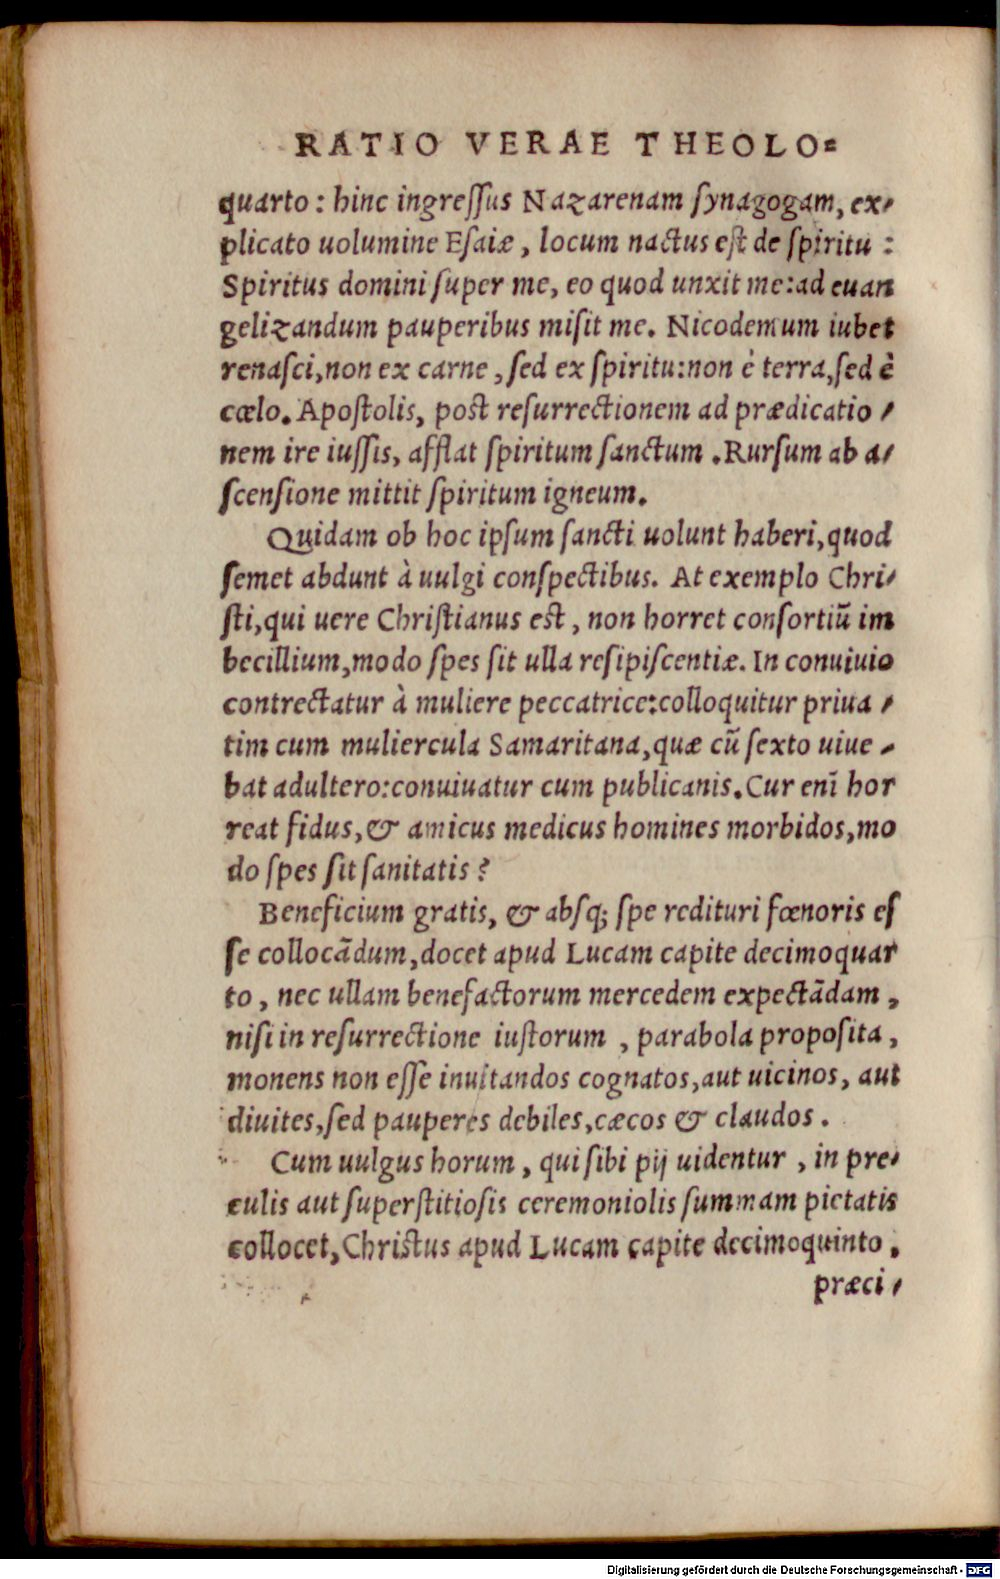 RATIO VERAE THEOLO=
quarto: hinc ingressus Nazarenam synagogam, ex-
plicato uolumine Esaiæ, locum nactus est de spiritu:
Spiritus domini super me, eo quod unxit me: ad euan
gelizandum pauperibus misit me. Nicodemum iubet
renasci, non ex carne, sed ex spiritu: non è terra, sed è
cœlo. Apostolis, post resurrectionem ad prædicatio-
nem ire iussis, afflat spiritum sanctum. Rursum ab a-
scensione mittit spiritum igneum.
Quidam ob hoc ipsum sancti uolunt haberi, quod
semet abdunt à uulgi conspectibus. At exemplo Chri-
sti, qui uere Christianus est, non horret consortiũ im
becillium, modo spes sit ulla resipiscentiæ. In conuiuio
contrectatur à muliere peccatrice: colloquitur priua-
tim cum muliercula Samaritana, quæ cũ sexto uiue-
bat adultero: conuiuatur cum publicanis. Cur enĩ hor
reat fidus, & amicus medicus homines morbidos, mo
do spes sit sanitatis?
Beneficium gratis, & absq; spe redituri fœnoris es
se collocãdum, docet apud Lucam capite decimoquar
to, nec ullam benefactorum mercedem expectãdam,
nisi in resurrectione iustorum, parabola proposita,
monens non esse inuitandos cognatos, aut uicinos, aut
diuites, sed pauperes debiles, cæcos & claudos.
Cum uulgus horum, qui sibi pij uidentur, in pre-
culis aut superstitiosis ceremoniolis summam pietatis
collocet, Christus apud Lucam capite decimoquinto.
præci-
Digitalisierung gefördert durch die Deutsche Forschungsgemeinschaft - DFG